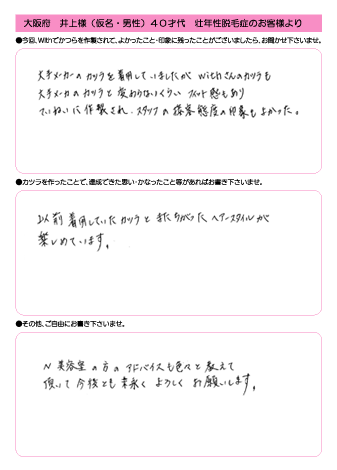 大阪府　井上様（仮名・男性）４０才代　壮年性脱毛症のお客様より
●今回、Withでかつらを作製されて、よかったこと・印象に残ったことがございましたら、お聞かせ下さいませ。
大手メーカーのカツラを着用していましたが withさんのカツラも
大手メーカのカツラと変わらないくらい フィット感もあり
ていねいに作製され、スタッフの接客態度の印象もよかった。
●カツラを作ったことで、達成できた思い・かなったこと等があればお書き下さいませ。
以前着用していたカツラとまたちがったヘアースタイルが
楽しめています。
●その他、ご自由にお書き下さいませ。
N美容室の方のアドバイスも色々と教えて
頂いて今後とも末永くよろしくお願いします。